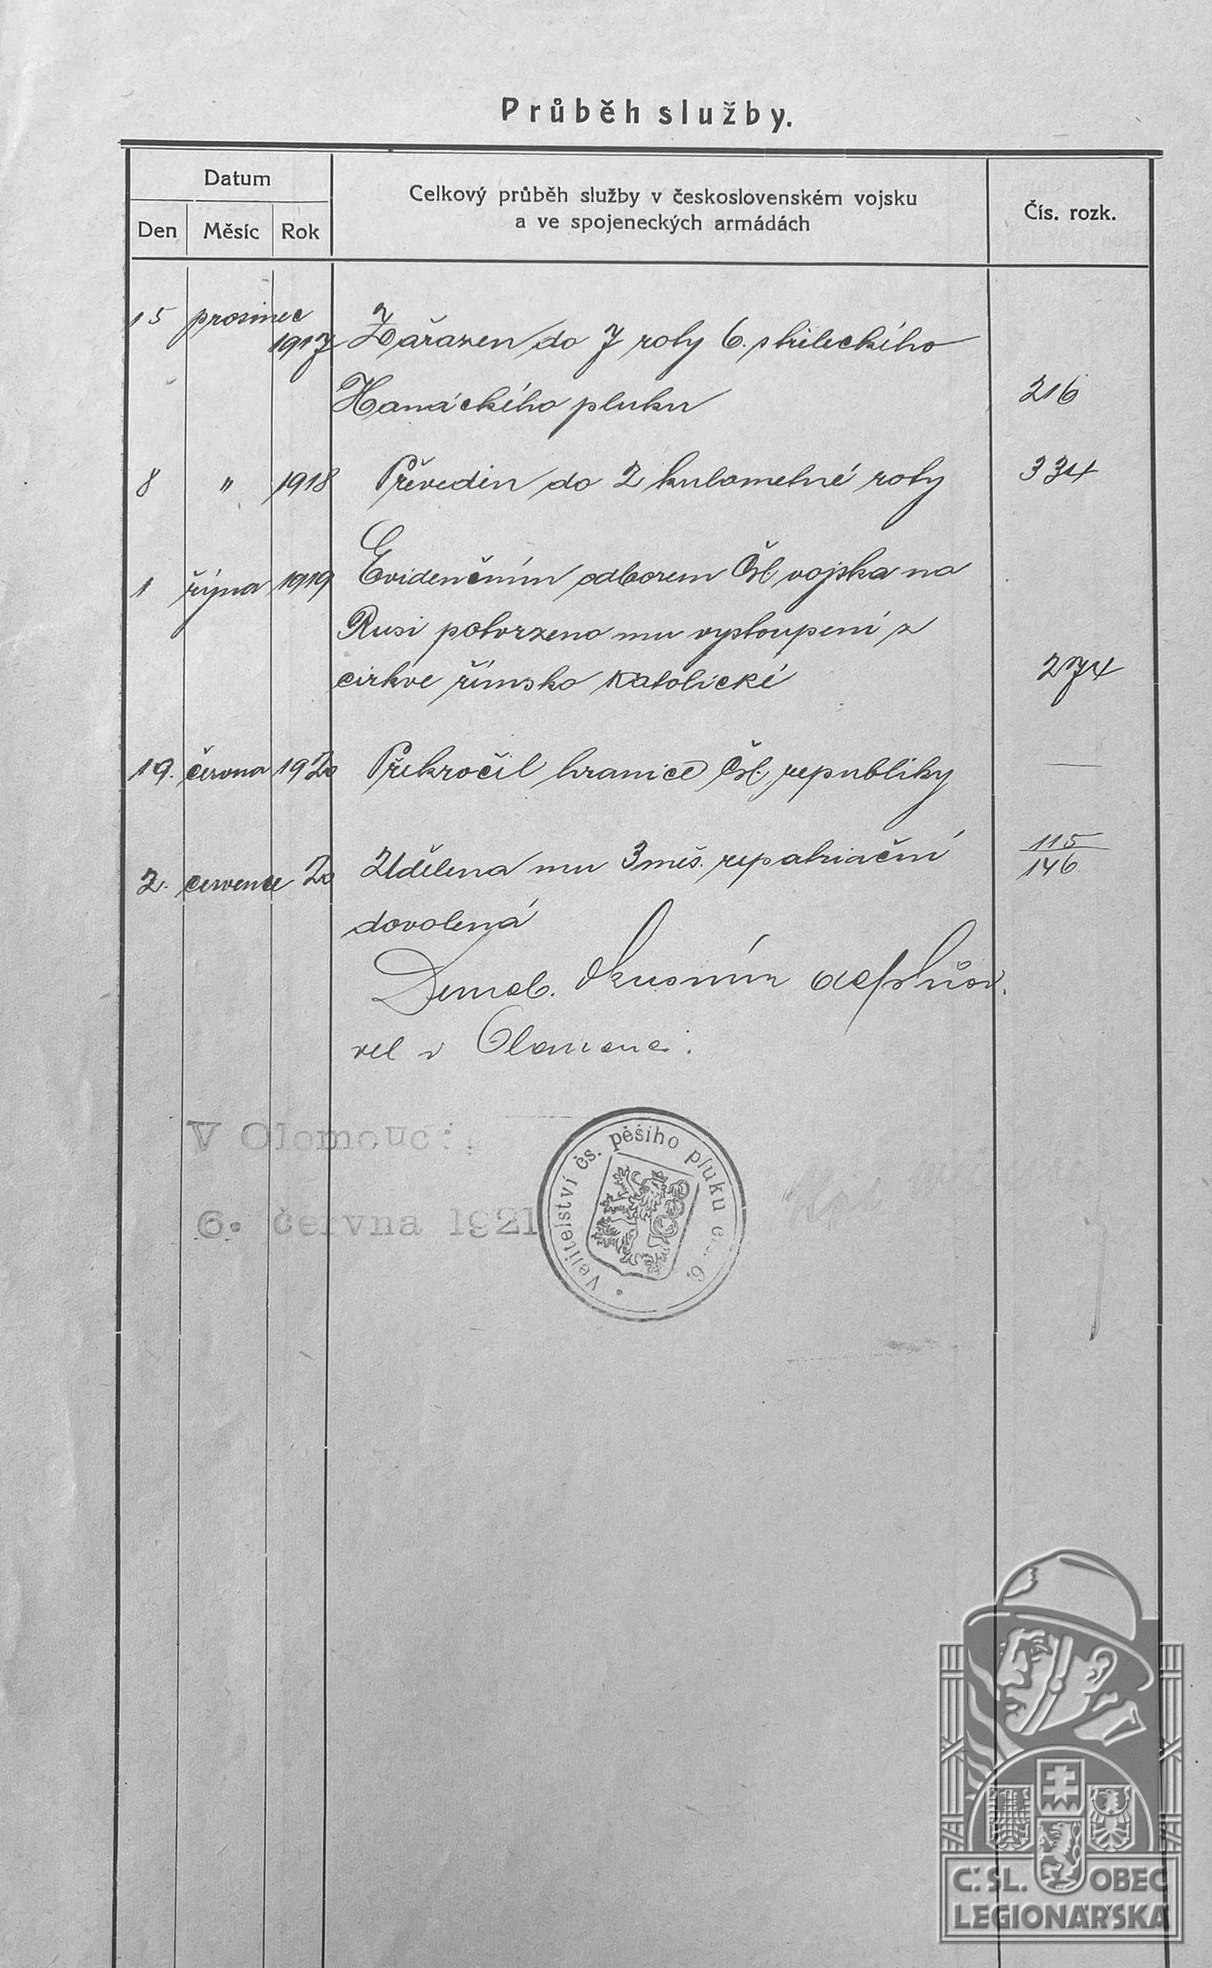 Průběh služby.
Datum
Den Měsíc Rok
Celkový průběh služby v československém vojsku
a ve spojeneckých armádách
Čís. rozk.
15 prosinec
1917 Zařazen do 7 roty 6. střeleckého
Hanáckého pluku 216
8 " 1918 Převeden do 2 kulometné roty 334
1 října 1919 Evidenčním odborem Čsl vojska na
Rusi potvrzeno mu vystoupení z
cirkve římsko katolické 274
19. června 1920 Překročil hranice Čsl. republiky —
2. července 20 Udělena mu 3 měs. repatriační 115/146
dovolená
Demob.
vel v Olomouci.
V Olomouci
6. června 1921
Velitelství čs. pěšího pluku čís. 6.
Č.SL. OBEC
LEGIONÁŘSKÁ